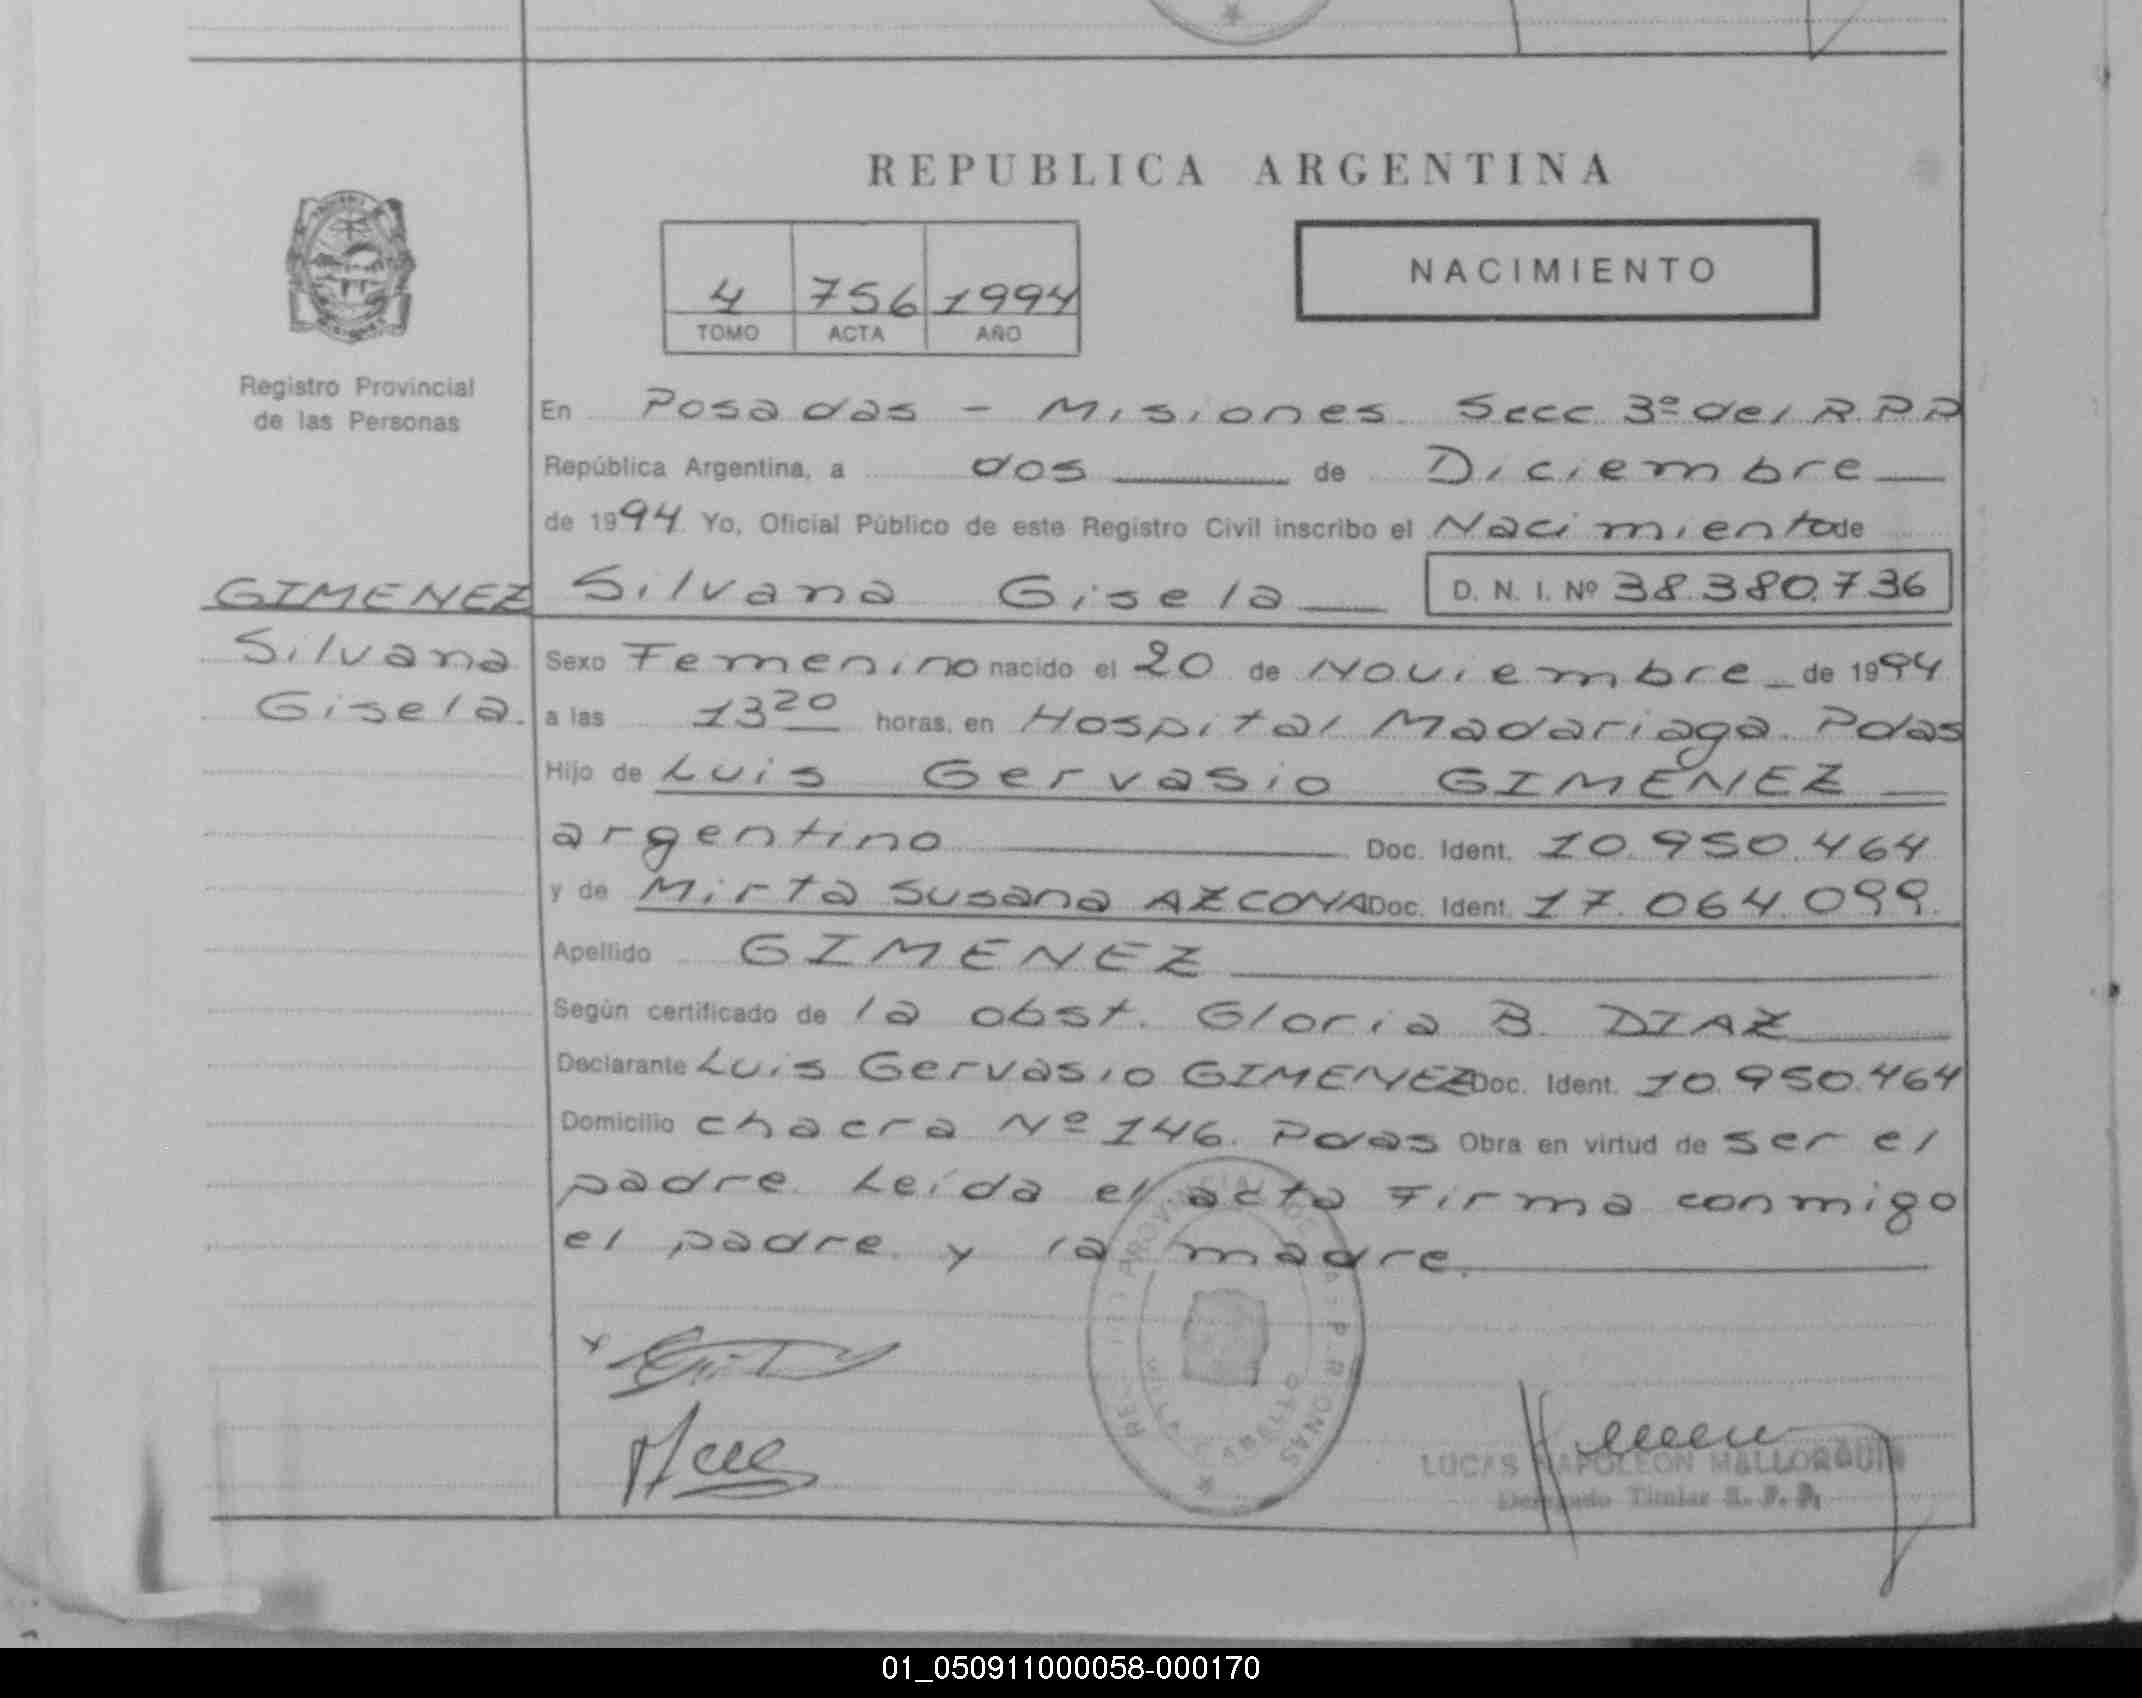 REPUBLICA ARGENTINA
NACIMIENTO
4 756 1994
TOMO ACTA AÑO
Registro Provincial
de las Personas
En Posadas - Misiones Secc 3º del R.P.P
República Argentina, a dos de Diciembre
de 1994 Yo, Oficial Público de este Registro Civil inscribo el Nacimiento de
GIMENEZ Silvana Gisela D. N. I. Nº 38.380.736
Silvana
Gisela.
Sexo Femenino nacido el 20 de Noviembre de 1994
a las 13 20 horas, en Hospital Madariaga. Pdas
Hijo de Luis Gervasio GIMENEZ
argentino Doc. Ident. 10.950.464
y de Mirta Susana AZCONA Doc. Ident. 17.064.099.
Apellido GIMENEZ
Según certificado de la obst. Gloria B. DIAZ
Declarante Luis Gervasio GIMENEZ Doc. Ident. 10.950.464
Domicilio chacra Nº 146. Pdas Obra en virtud de ser el
padre. Leída el acta Firma conmigo
el padre y la madre.
LUCAS NAPOLEON MALLORQUIN
Titular R. P. P.
01_050911000058-000170